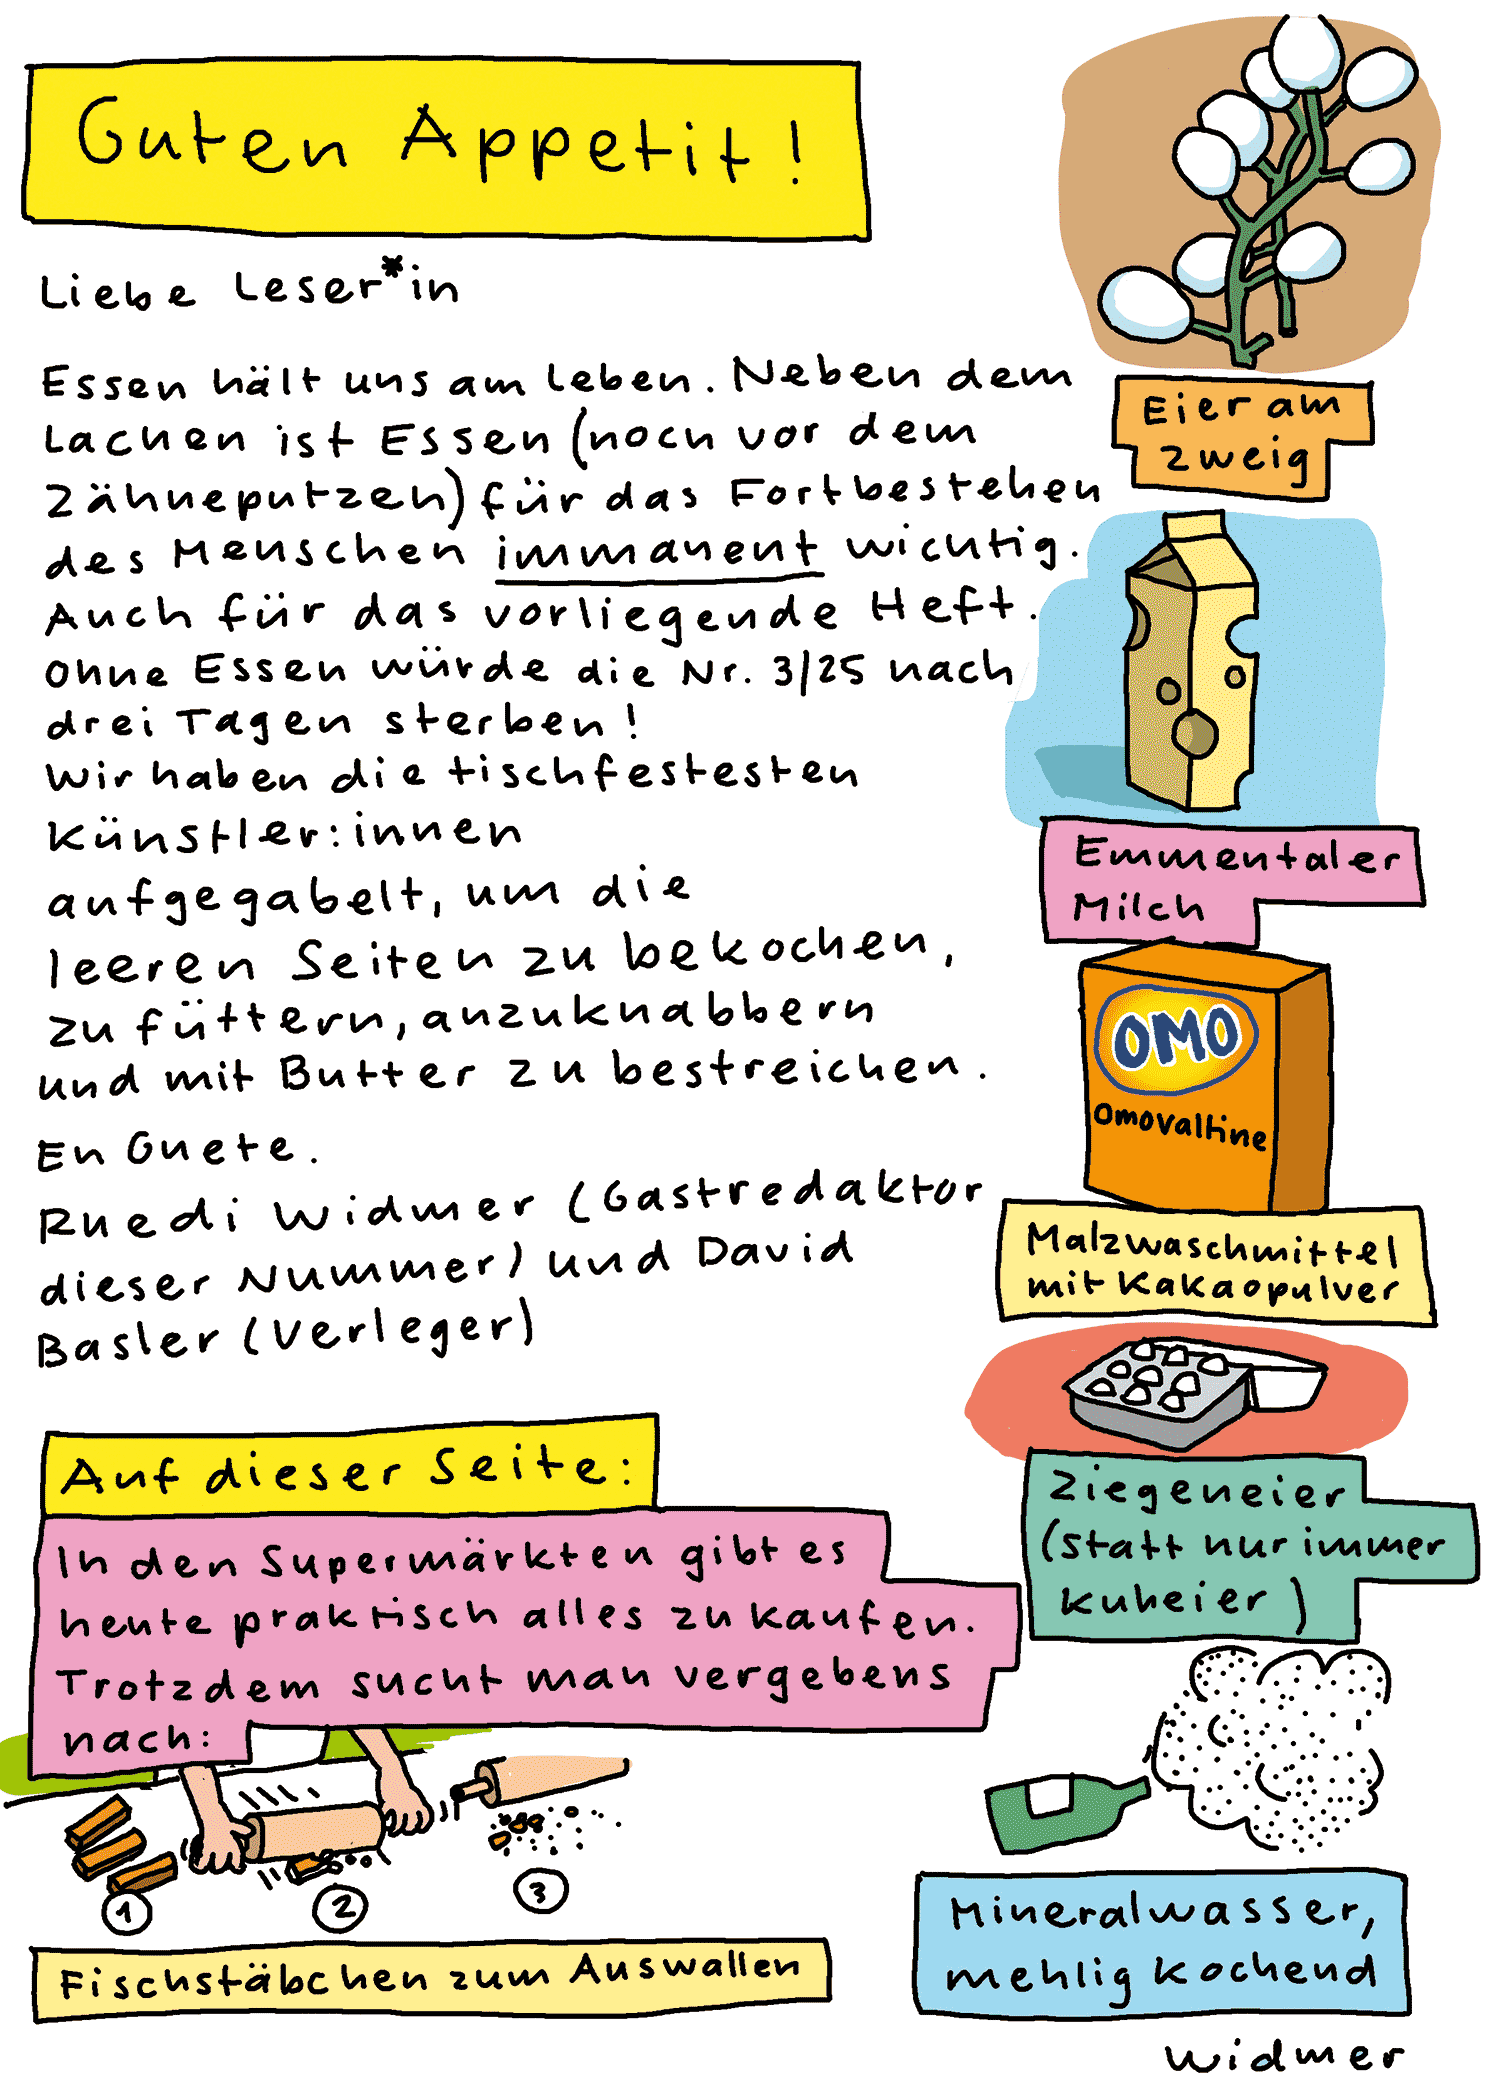 Guten Appetit!
Liebe Leser*in
Essen hält uns am Leben. Neben dem
Lachen ist Essen (noch vor dem
Zähneputzen) für das Fortbestehen
des Menschen immanent wichtig.
Auch für das vorliegende Heft.
Ohne Essen würde die Nr. 3/25 nach
drei Tagen sterben!
Wir haben die tischfestesten
Künstler:innen
aufgegabelt, um die
leeren Seiten zu bekochen,
zu füttern, anzuknabbern
und mit Butter zu bestreichen.
En Guete.
Ruedi Widmer (Gastredaktor
dieser Nummer) und David
Basler (Verleger)
Auf dieser Seite:
In den Supermärkten gibt es
heute praktisch alles zu kaufen.
Trotzdem sucht man vergebens
nach:
1 2 3
Fischstäbchen zum Auswallen
Eier am
Zweig
Emmentaler
Milch
OMO
Omovaltine
Malzwaschmittel
mit Kakaopulver
Ziegeneier
(statt nur immer
Kuheier)
Mineralwasser,
mehlig kochend
Widmer